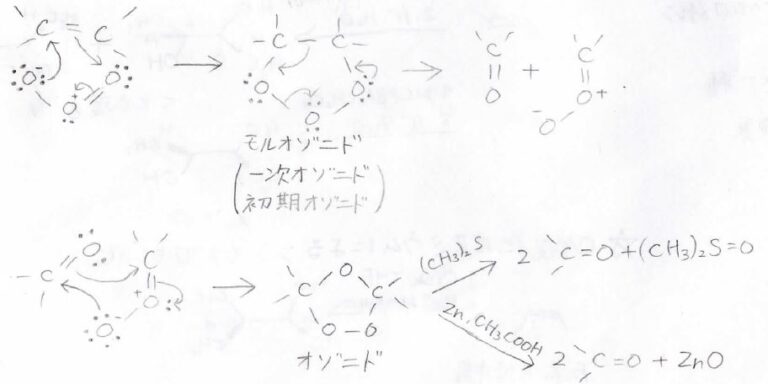 C = C
O⁻ O O
→
C — C
O O O
モルオゾニド
(一次オゾニド
初期オゾニド)
→
C = O + C = O⁺ — O⁻
C = O
C = O⁺ — O⁻
→
C O C
O — O
オゾニド
(CH₃)₂S
2 C=O + (CH₃)₂S=O
Zn, CH₃COOH
2 C=O + ZnO